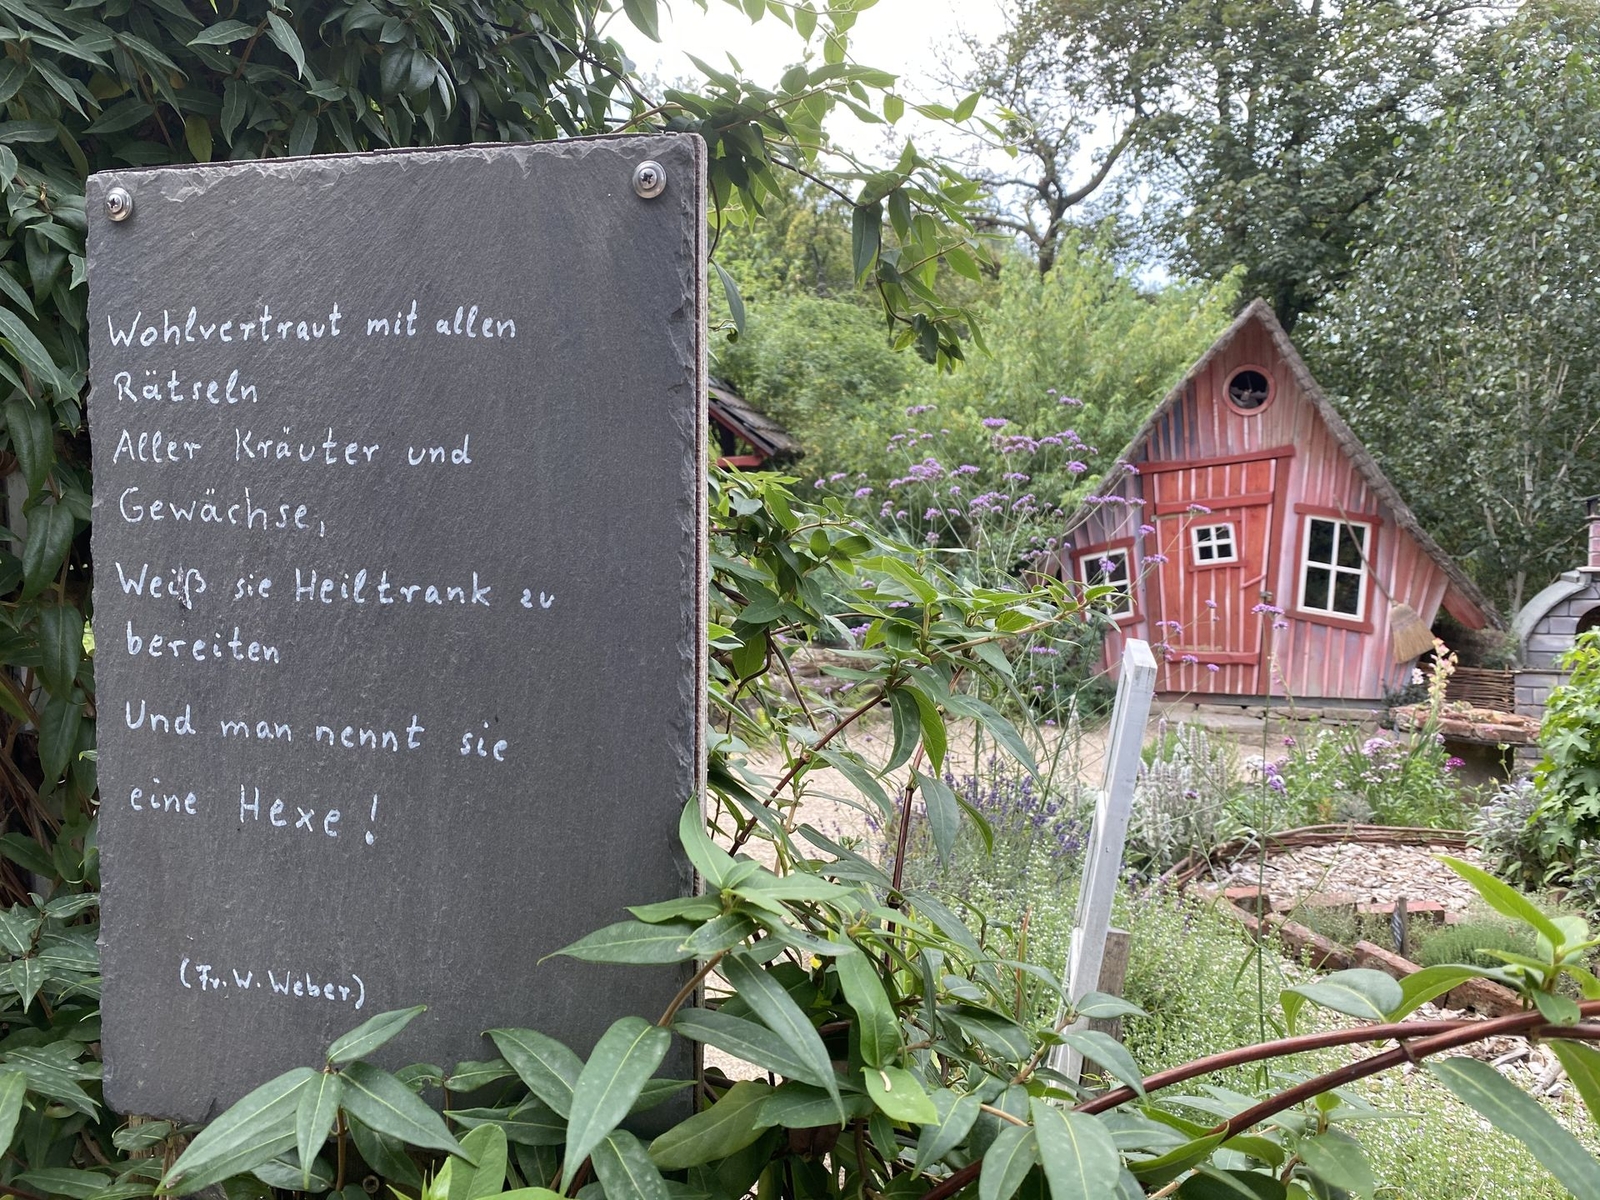 Wohlvertraut mit allen
Rätseln
Aller Kräuter und
Gewächse,
Weiß sie Heiltrank zu
bereiten
Und man nennt sie
eine Hexe!
(Fr. W. Weber)